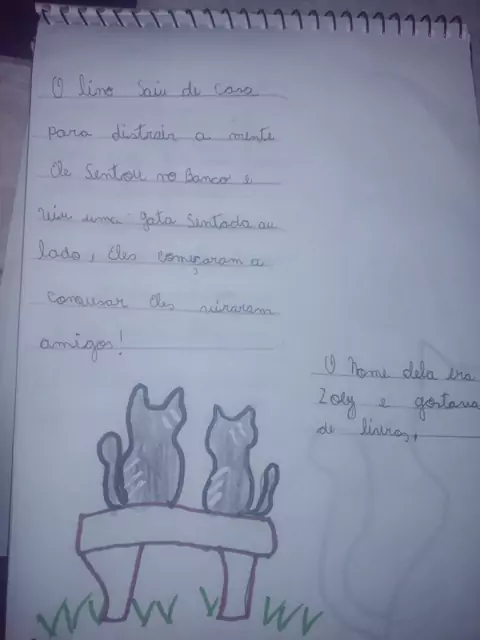 O lino Saiu de casa
para distrair a mente
Ele Sentou no Banco e
viu uma gata Sentada au
lado, Eles começaram a
conversar Eles viraram
amigos!
O nome dela era
Zoly e gostava
de livros,